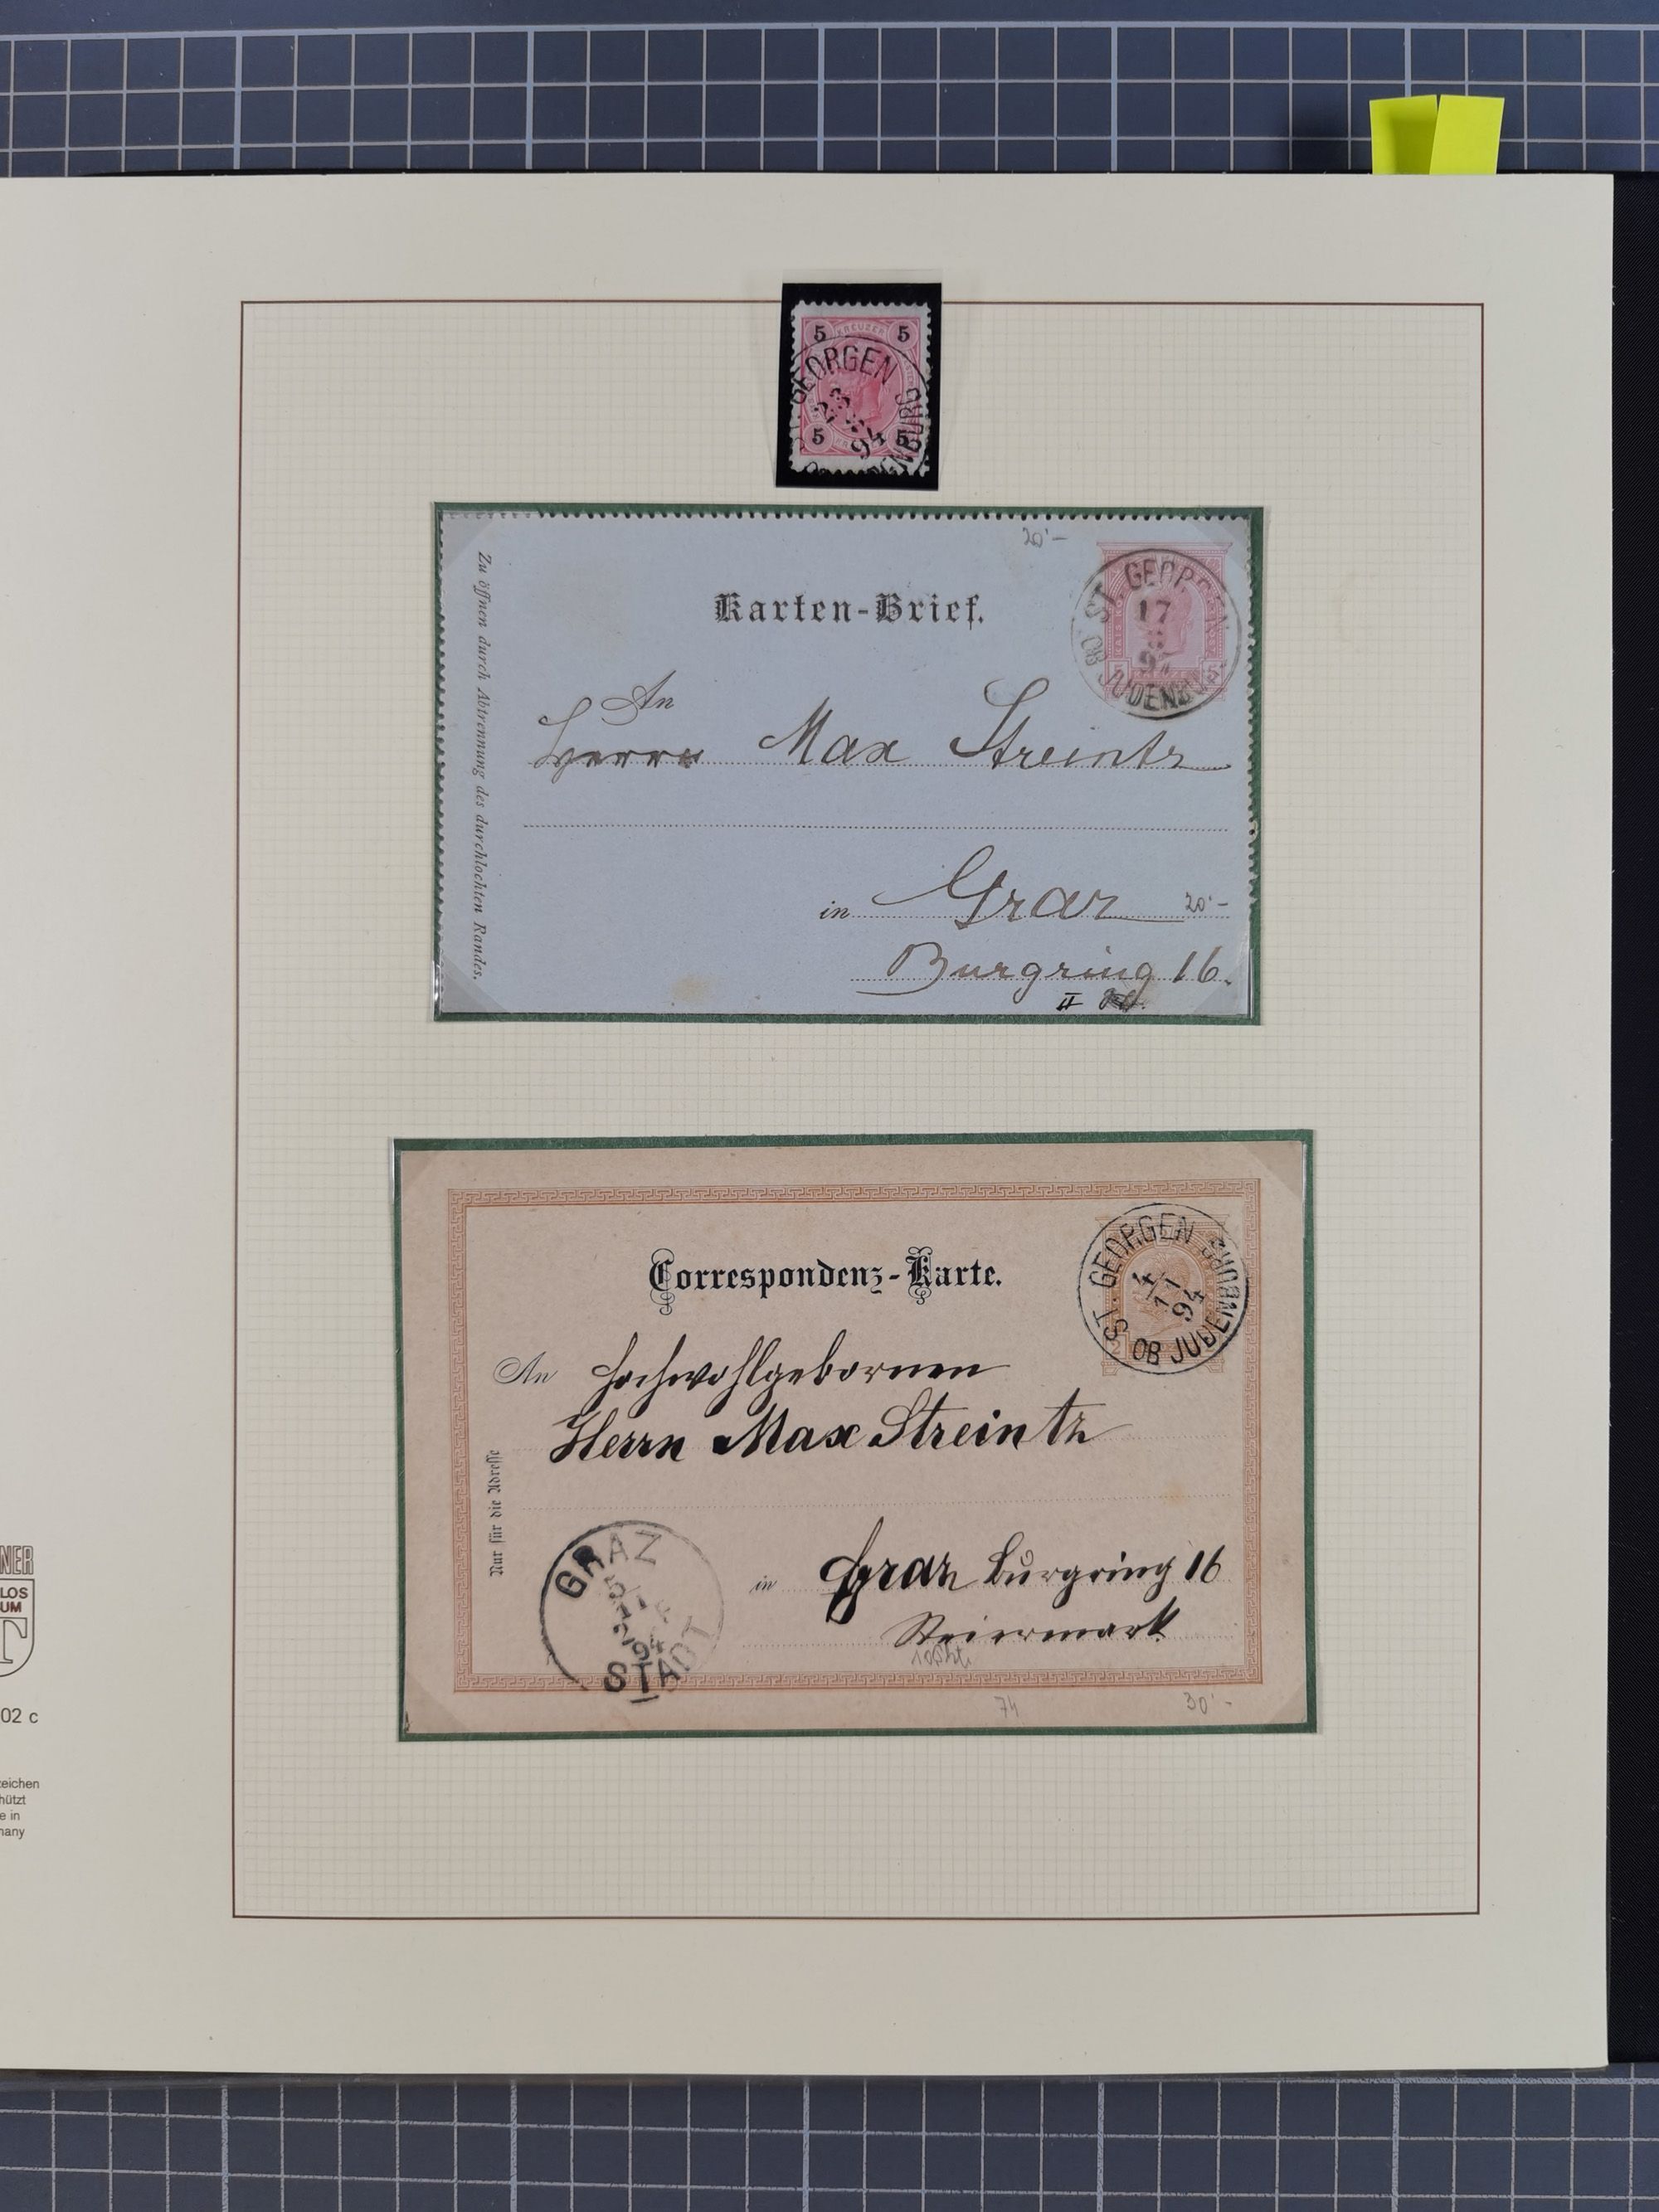 5 KREUZER 5
GEORGEN
23
94
5 5
20'-
Karten-Brief.
ST. GEORGEN
17
OB JUDENBU
5 5
Zu öffnen durch Abtrennung des durchlochten Randes.
An
Herrn Max Streintz
in Graz 20'-
Burgring 16.
II
Correspondenz-Karte.
ST. GEORGEN
4
11
94
OB JUDENBURG
2
An Hochwohlgebornen
Herrn Max Streintz
Nur für die Adresse
in Graz Burgring 16
Steiermark
GRAZ
94
STADT
74 30'-
NER
LOS
UM
T
02 c
zeichen
hützt
e in
many